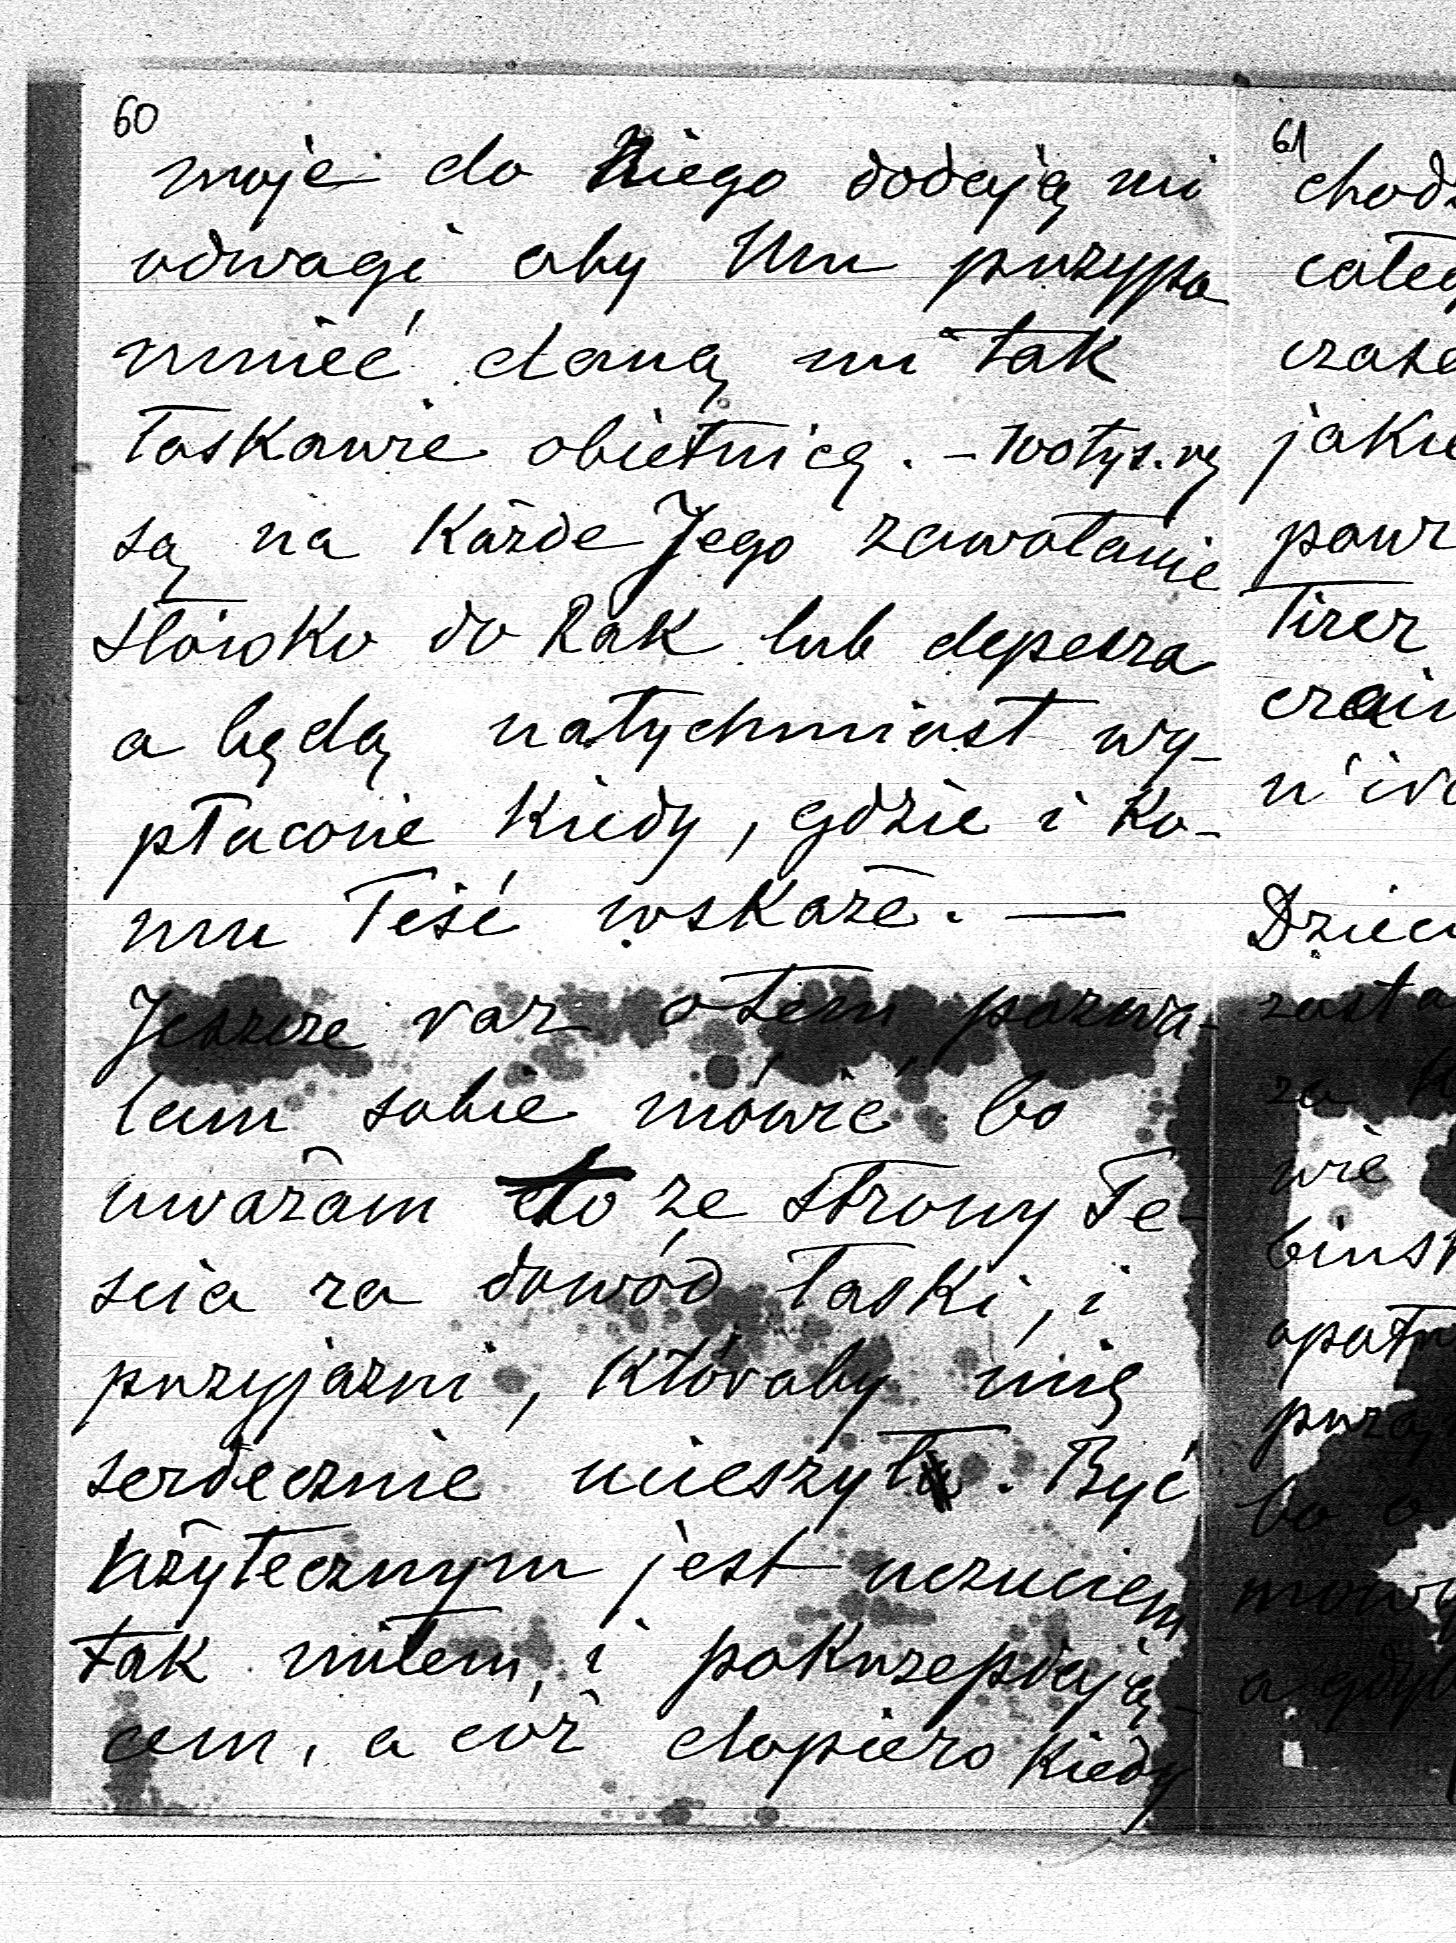 60
moje do Niego dodają mi
odwagi aby Mu przypo
mnieć daną mi tak
łaskawie obietnicę. –
są na każde Jego zawołanie
Słówko do Rąk lub depesza
a będą natychmiast wy-
płacone kiedy, gdzie i ko-
mu Teść wskaże. —
Jeszcze raz o tem pozwa-
lam sobie mówić bo
uważam to ze strony Te-
scia za dowód łaski, i
przyjazni, któraby mię
serdecznie ucieszyła. Być
użytecznym jest uczuciem
tak miłem, i pokrzepiają-
cem, a cóż dopiero kiedy
61
chodz
całeg
czase
jakie
powr
Tirer
n'ira
Dzieci
zosta
za
wie
bińsk
opatr
przy
bo o
mowy
a gdyb